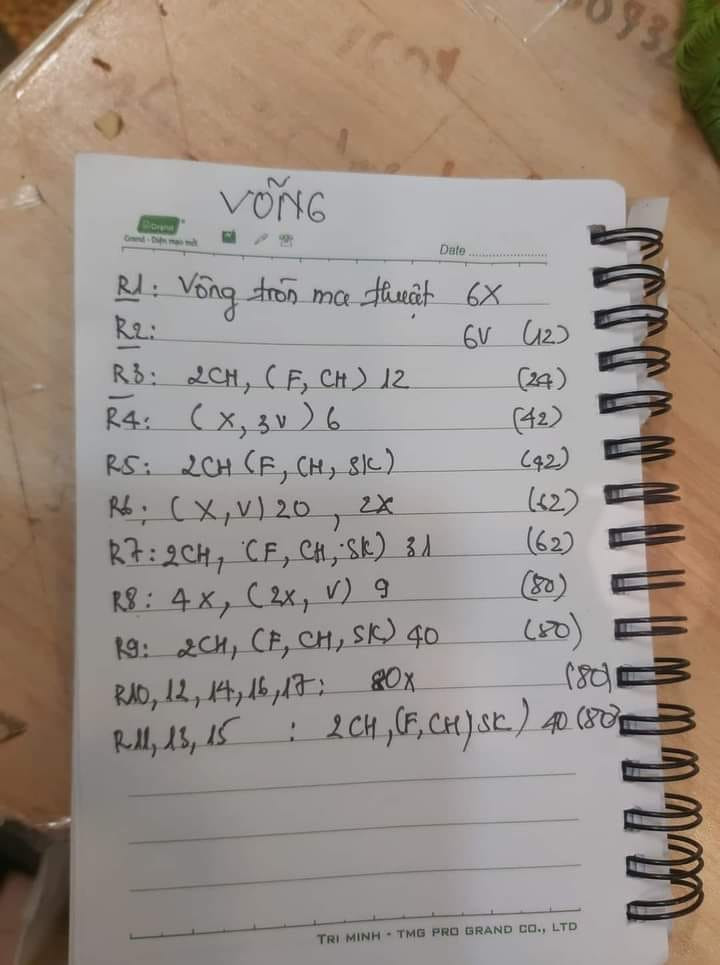 VÕNG
Grand
Grand - Diện mạo mới
Date
R1: Vòng tròn ma thuật 6X
R2: 6V (12)
R3: 2CH, (F, CH) 12 (24)
R4: (X, 3V) 6 (42)
R5: 2CH (F, CH, SK) (42)
R6: (X, V) 20, 2X (62)
R7: 2CH, (F, CH, SK) 31 (62)
R8: 4X, (2X, V) 9 (80)
R9: 2CH, (F, CH, SK) 40 (80)
R10, 12, 14, 16, 17: 80X (80)
R11, 13, 15 : 2CH, (F, CH, SK) 40 (80)
TRI MINH - TMG PRO GRAND CO., LTD